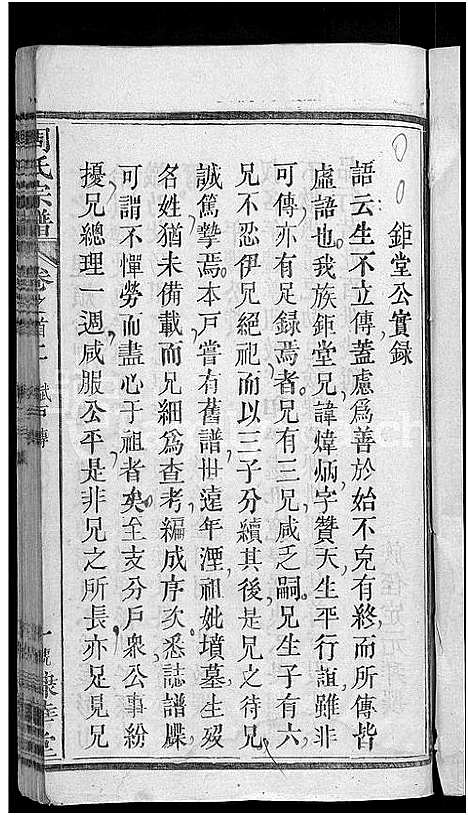 鉅堂公實録
語云生不立傳蓋慮爲善於始不克有終而所傳皆
虚語也我族鉅堂兄諱煒炳字贊天生平行誼雖非
可傳亦有足録焉者兄有三兄咸乏嗣兄生子有六
兄不忍伊兄絕祀而以三子分續其後是兄之待兄
誠篤摯焉本戸嘗有舊譜世遠年湮祖妣墳墓生歿
名姓猶未備載而兄細爲查考編成序次悉誌譜牒
可謂不憚勞而盡心于祖者矣至支分戸衆公事紛
擾兄總理一週咸服公平是非兄之所長亦足見兄
周氏宗譜 卷之首二 傳